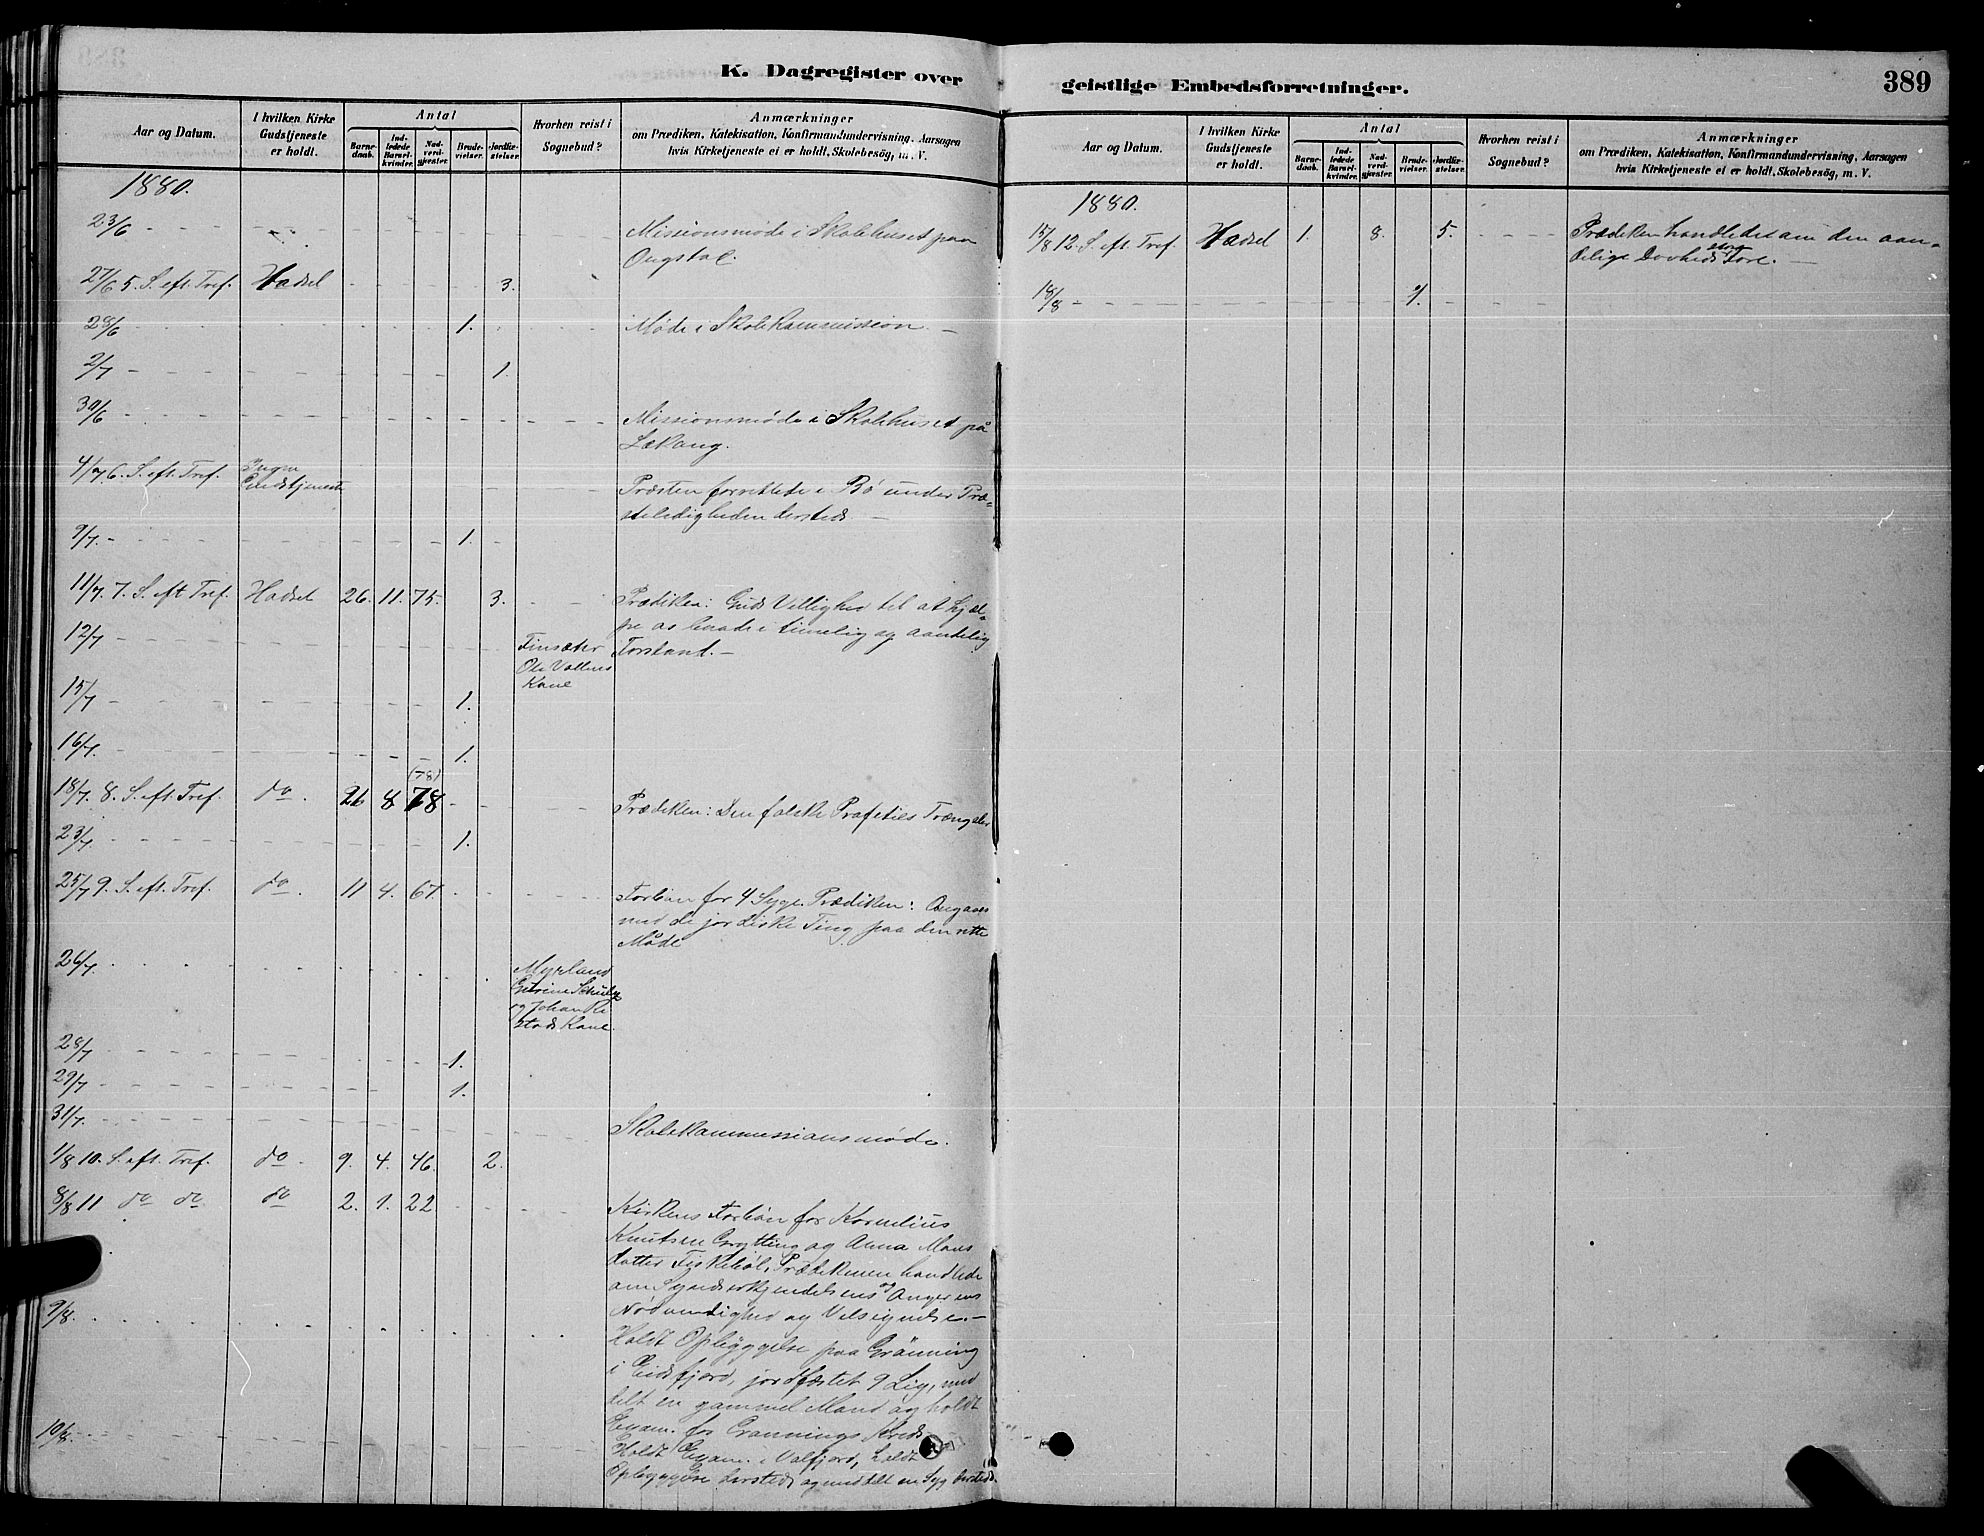 K. Dagregister over
Aar og Datum.
I hvilken Kirke
Gudstjeneste
er holdt.
Antal
Barne-
daab.
Ind-
ledede
Barsel-
kvinder.
Nad-
verd-
gjester.
Brude-
vielser.
Jordfæ-
stelser.
Hvorhen reist i
Sognebud?
Anmærkninger
om Prædiken, Katekisation, Konfirmandundervisning, Aarsagen
hvis Kirketjeneste ei er holdt, Skolebesög, m. V.
1880.
23/6 Missionsmøde i Skolehuset paa
27/6 5. S. eft. Tref. Hadsel 3.
28/6 1. Møde i Skolekommission. —
2/7 1.
30/6 Missionsmøde i Skolehuset på
Lekang.
4/7 6. S. eft. Tref. Ingen
Gudstjeneste
Præsten forrettede i Bø under Præ-
steledigheden dersteds —
9/7. 1.
11/7. 7. S. eft Tref. Hadsel 26. 11. 75. 3. Prædiken: Guds Villighed til at hjæl-
pe os baade i timelig og aandelig
12/7 Finsæter
Ole Vollens
Kone
Forstand. —
15/7 1.
16/7. 1.
(78)
18/7. 8. S. eft. Tref. do. 26 8 78 Prædiken: Den falske Profeties
23/7 1.
25/7 9. S. eft. Tref. do. 11 4. 67. Forbøn for 4 Syge. Prædiken:
med de jordiske Ting paa den rette
Måde
26/7 Myrland
og Johan
stads Kone.
28/7 1.
29/7 1.
31/7. Skolekommissionsmøde.
1/8 10. S. eft. Tref. do. 9. 4. 46. 2.
8/8 11 do do do 2. 1. 22 Kirkens Forbøn for Kornelius
Knutsen Grytting og Anna Mons
datter Fiskebøl. Prædikenen handlede
om Syndserkjendelsens og Angerens
Nødvendighed og Velsignelse. —
9/8. Holdt Opbyggelse paa Grönning
i Eidsfjord, jordfæstet 9 Lig, med
delt en gammel Mand og holdt
Exam. for Grönnings Kreds
10/8. Holdt Exam. i Valfjord, holdt
Opbyggelse dersteds og meddelt en Syg dersteds.
geistlige Embedsforretninger.
389
Aar og Datum.
I hvilken Kirke
Gudstjeneste
er holdt.
Antal
Barne-
daab.
Ind-
ledede
Barsel-
kvinder.
Nad-
verd-
gjester.
Brude-
vielser.
Jordfæ-
stelser.
Hvorhen reist i
Sognebud?
Anmærkninger
om Prædiken, Katekisation, Konfirmandundervisning, Aarsagen
hvis Kirketjeneste ei er holdt, Skolebesög, m. V.
1880.
15/8 12. S. eft. Tref. Hadsel 1. 8. 5. Prædiken handlede om den aan-
delige Døvheds store Fare. —
18/8 1.